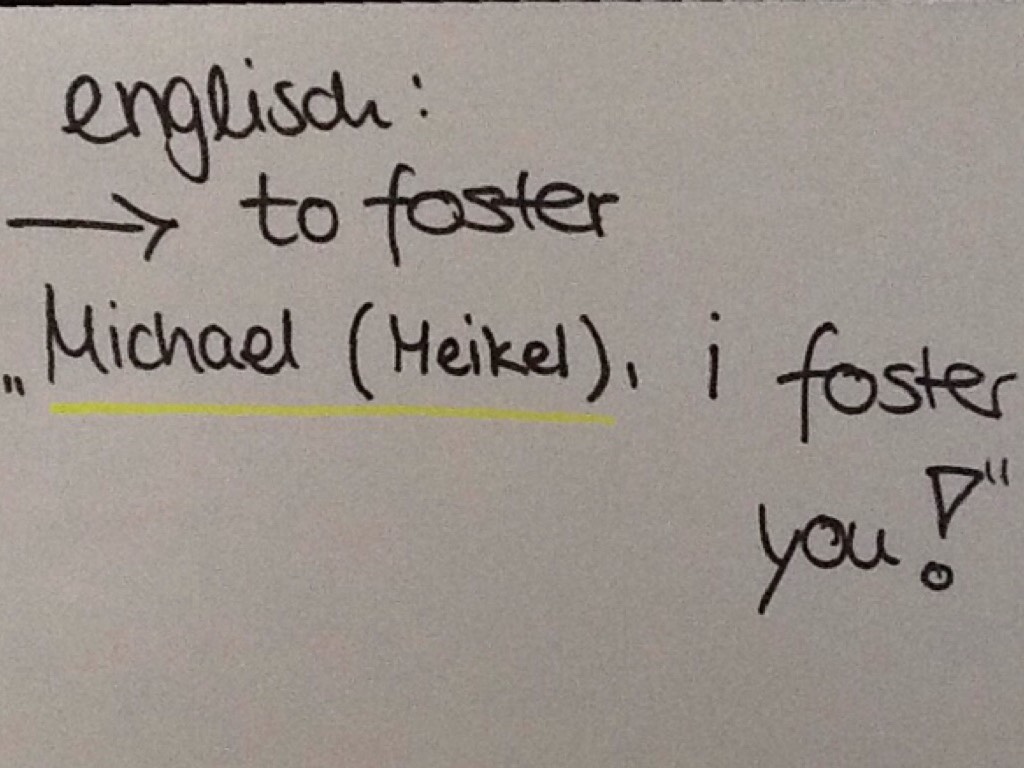 englisch:
→ to foster
„Michael (Meikel), i foster
you!“